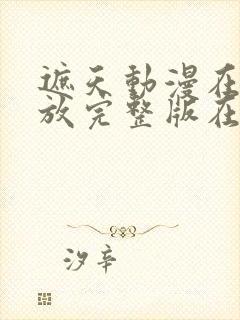 遮天動漫在
放完整版在
汐辛